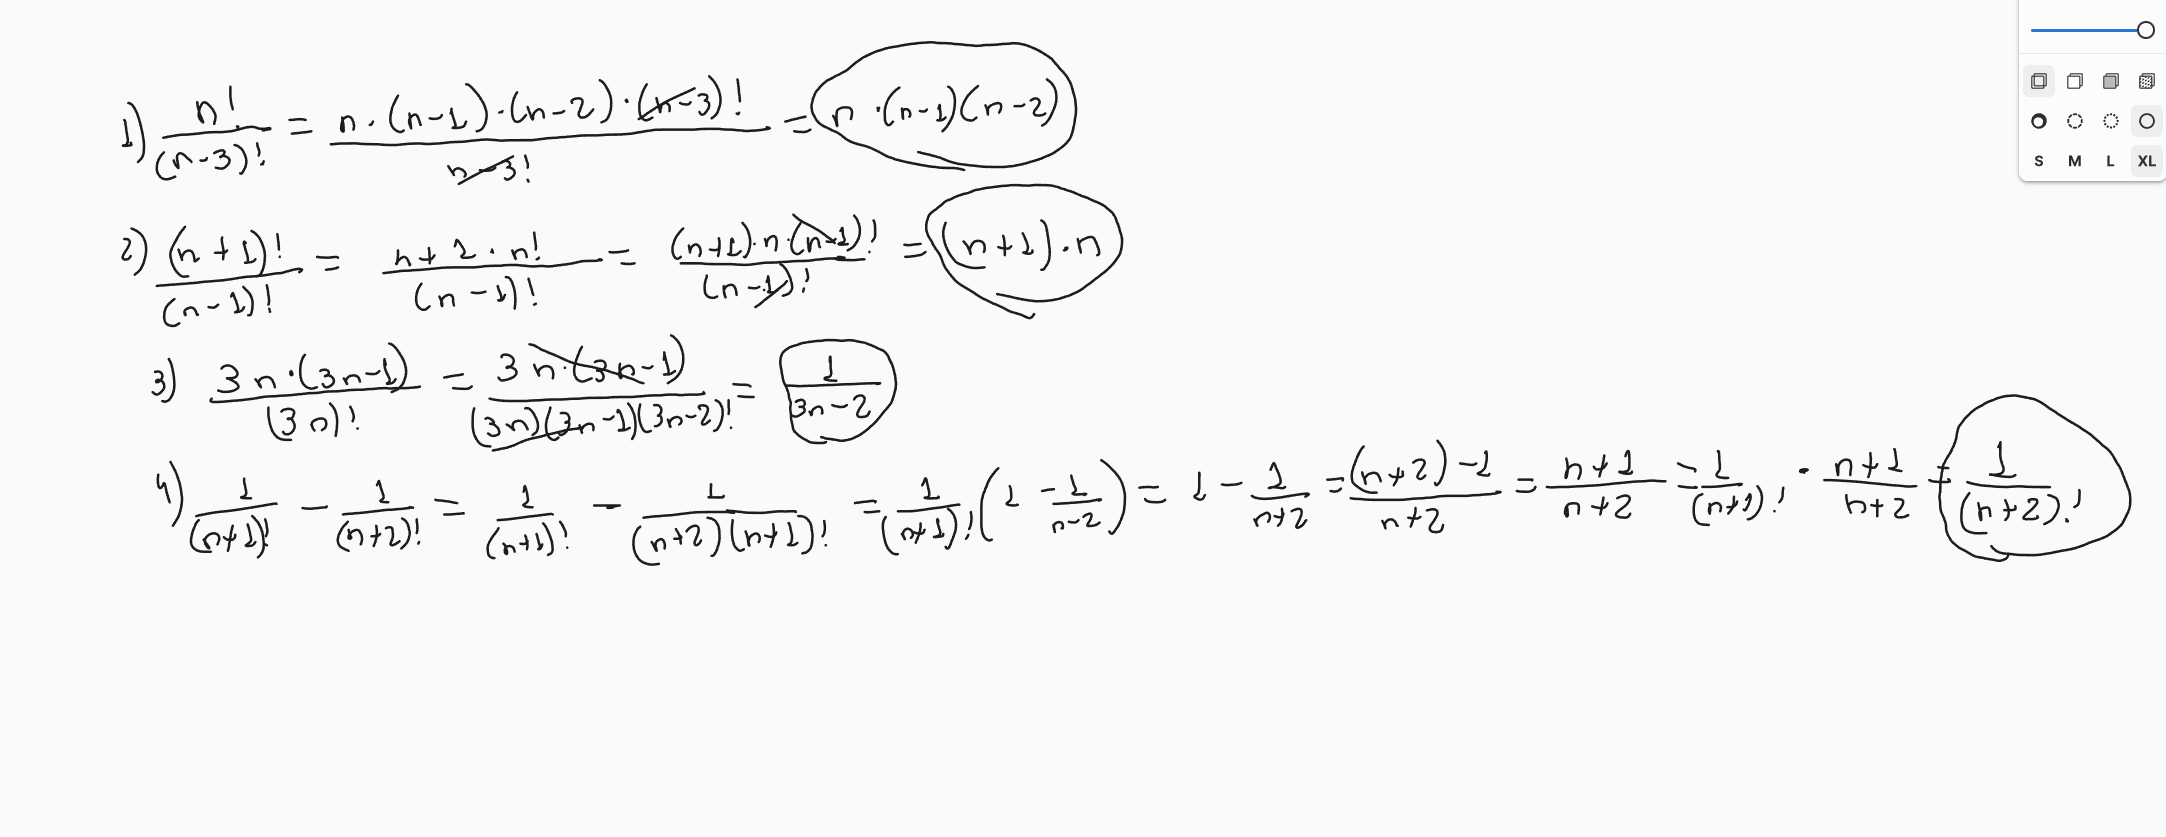 1) n!/(n-3)! = n·(n-1)·(n-2)·(n-3)!/n-3! = n·(n-1)(n-2)
2) (n+1)!/(n-1)! = n+1·n!/(n-1)! = (n+1)·n·(n-1)!/(n-1)! = (n+1)·n
3) 3n·(3n-1)/(3n)! = 3n·(3n-1)/(3n)(3n-1)(3n-2)! = 1/3n-2
4) 1/(n+1)! - 1/(n+2)! = 1/(n+1)! - 1/(n+2)(n+1)! = 1/(n+1)! (1 - 1/n-2) = 1 - 1/n+2 = (n+2)-1/n+2 = n+1/n+2 = 1/(n+1)! · n+1/n+2 = 1/(n+2)!
S M L XL